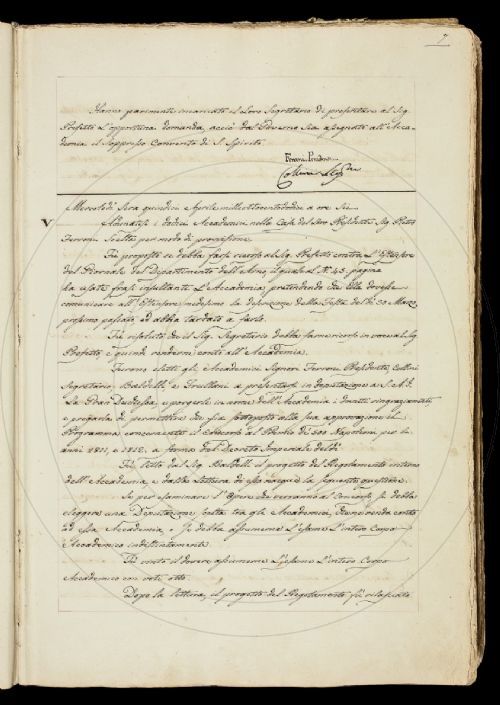 7
Hanno parimente incaricato il loro Segretario di presentare al Sig.
Prefetto l'opportuna domanda, acciò dal Governo sia assegnato all'Acca-
demia il soppresso Convento di S. Spirito.
Ferroni Presidente
Collini Seg.
V
Mercoledì Sera quindici Aprile mille ottocentododici a ore Sei
Adunatisi i dodici Accademici nella Casa del Sen. Presidente Sig. Pietro
Ferroni Scelta per modo di provvisione.
Fù proposto se debba farsi ricorso al Sig. Prefetto contro l'Estensore
del Giornale del Dipartimento dell'Arno, il quale al N. 45. pagina
ha usate frasi insultanti l'Accademia, pretendendo che Ella dovesse
comunicare all'Estensore medesimo la descrizione della Festa del dì 30 Marzo
prossimo passato, ed abbia tardato a farlo.
Fù risoluto che il Sig. Segretario debba farne ricorso in voce al Sig.
Prefetto e quindi renderne conto all'Accademia.
Furono eletti gli Accademici Signori Ferroni Presidente, Collini
Segretario, Baldelli, e Frullani a presentarsi in deputazione a S. A. I.
La Gran Duchessa, e porgerle in nome dell'Accademia i dovuti ringraziamenti
e pregarla di permettere che sia sottoposto alla sua approvazione il
Programma concernente il Concorso al Premio di 500 Napoleoni per li
anni 1811, e 1812. a forma del Decreto Imperiale del dì
Fù letto dal Sig. Baldelli il progetto del Regolamento interno
dell'Accademia, e dalla lettura di esso nacque la seguente questione.
Se per esaminare l'Opere che verranno al Concorso si debba
eleggere una Deputazione scelta tra gli Accademici, che ne renda conto
ad essa Accademia, o se debba assumerne l'esame l'intero Corpo
Accademico indistintamente.
Fù vinto il dovere assumerne l'esame l'intero Corpo
Accademico con voti otto.
Dopo la lettura, il progetto del Regolamento fù rilasciato